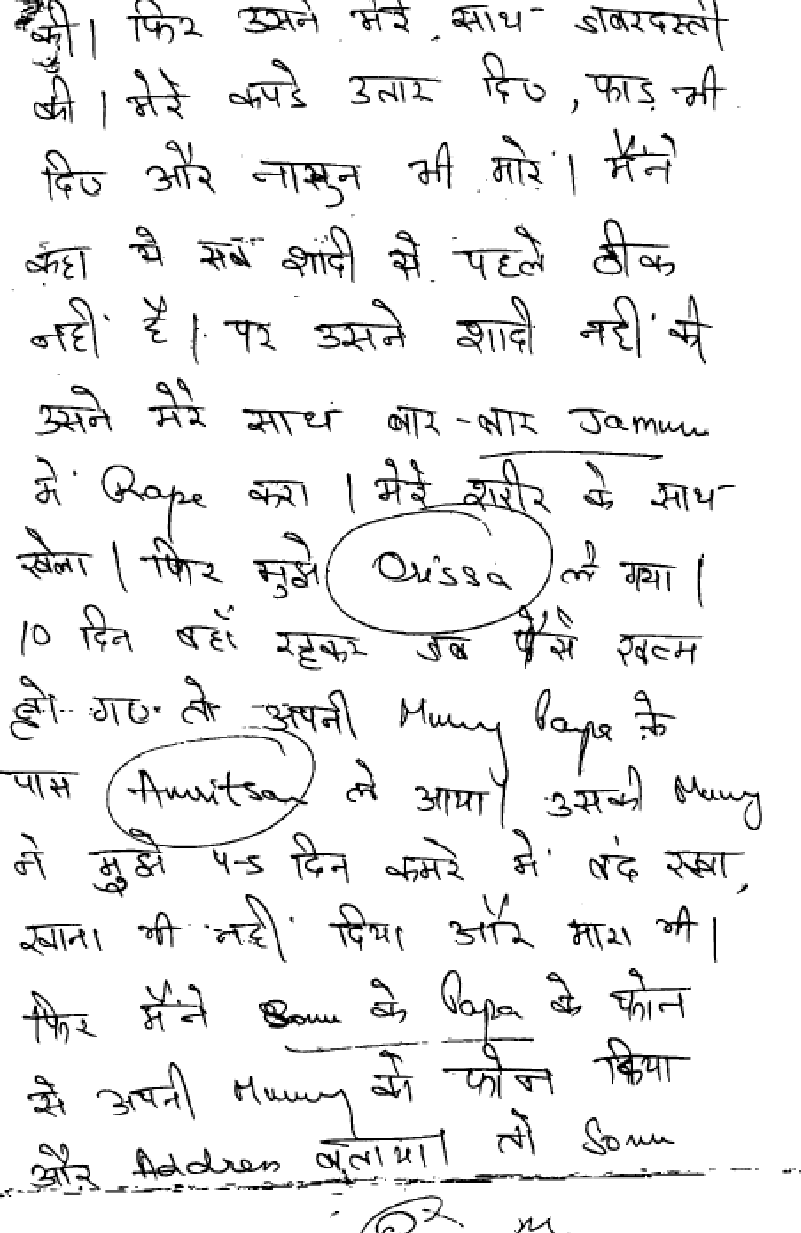 की। फिर उसने मेरे साथ जबरदस्ती
की। मेरे कपडे उतार दिए, फाड़ भी
दिए और नाखुन भी मारे। मैंने
कहा ये सब शादी से पहले ठीक
नहीं है। पर उसने शादी नहीं की
उसने मेरे साथ बार-बार Jammu
में Rape करा। मेरे शरीर के साथ
खेला। फिर मुझे Orissa ले गया।
10 दिन वहाँ रहकर जब पैसे खत्म
हो गए तो अपनी Mummy Papa के
पास Amritsar ले आया। उसकी Mummy
ने मुझे 4-5 दिन कमरे में बंद रखा,
खाना भी नहीं दिया और मारा भी।
फिर मैंने Sonu के Papa के फोन
से अपनी Mummy को फोन किया
और Address बताया। तो Sonu